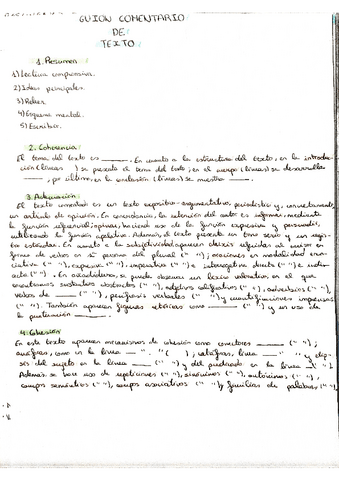 GUION COMENTARIO
DE
TEXTO
1. Resumen
1) Lectura comprensiva.
2) Ideas principales.
3) Releer.
4) Esquema mental.
5) Escribir.
2. Coherencia
El tema del texto es ______. En cuanto a la estructura del texto, en la introduc-
ción (líneas ) se presenta el tema del texto; en el cuerpo (líneas) se desarrolla
______, por último, en la conclusión (líneas) se muestra ______.
3. Adecuación
El texto comentado es un texto expositivo-argumentativo, periodístico y, concretamente,
un artículo de opinión. En concordancia, la intención del autor es informar, mediante
la función referencial; opinar, haciendo uso de la función expresiva y persuadir,
utilizando la función apelativa. Además, el texto presenta un tono serio y un regis-
tro estándar. En cuanto a la subjetividad, aparecen deixis referidas al emisor en
forma de verbos en 1ª persona del plural (" "); oraciones en modalidad enun-
ciativa (" "), expresiva (" "), imperativa (" ") e interrogativa directa (" ") e indir-
ecta (" "). En consecuencia, se puede observar un léxico valorativo, en el que
encontramos sustantivos abstractos (" "), adjetivos calificativos (" "), adverbios (" "),
verbos de ______ (" "), perífrasis verbales (" ") y cuantificaciones imprecisas
(" "). También aparecen figuras retóricas como ______ (" ") y un uso de
la puntuación ______.
4. Cohesión
En este texto aparecen mecanismos de cohesión como conectores ______ (" ");
anáforas, como en la línea __ " " ( ), catáforas, línea __ " " y elip-
sis del sujeto en la línea ____ (" ") y del predicado en la línea __ (" ").
Además se hace uso de repeticiones (" "), sinónimos (" "), antónimos (" "),
campos semánticos (" "), campos asociativos (" ") y familias de palabras (" ").